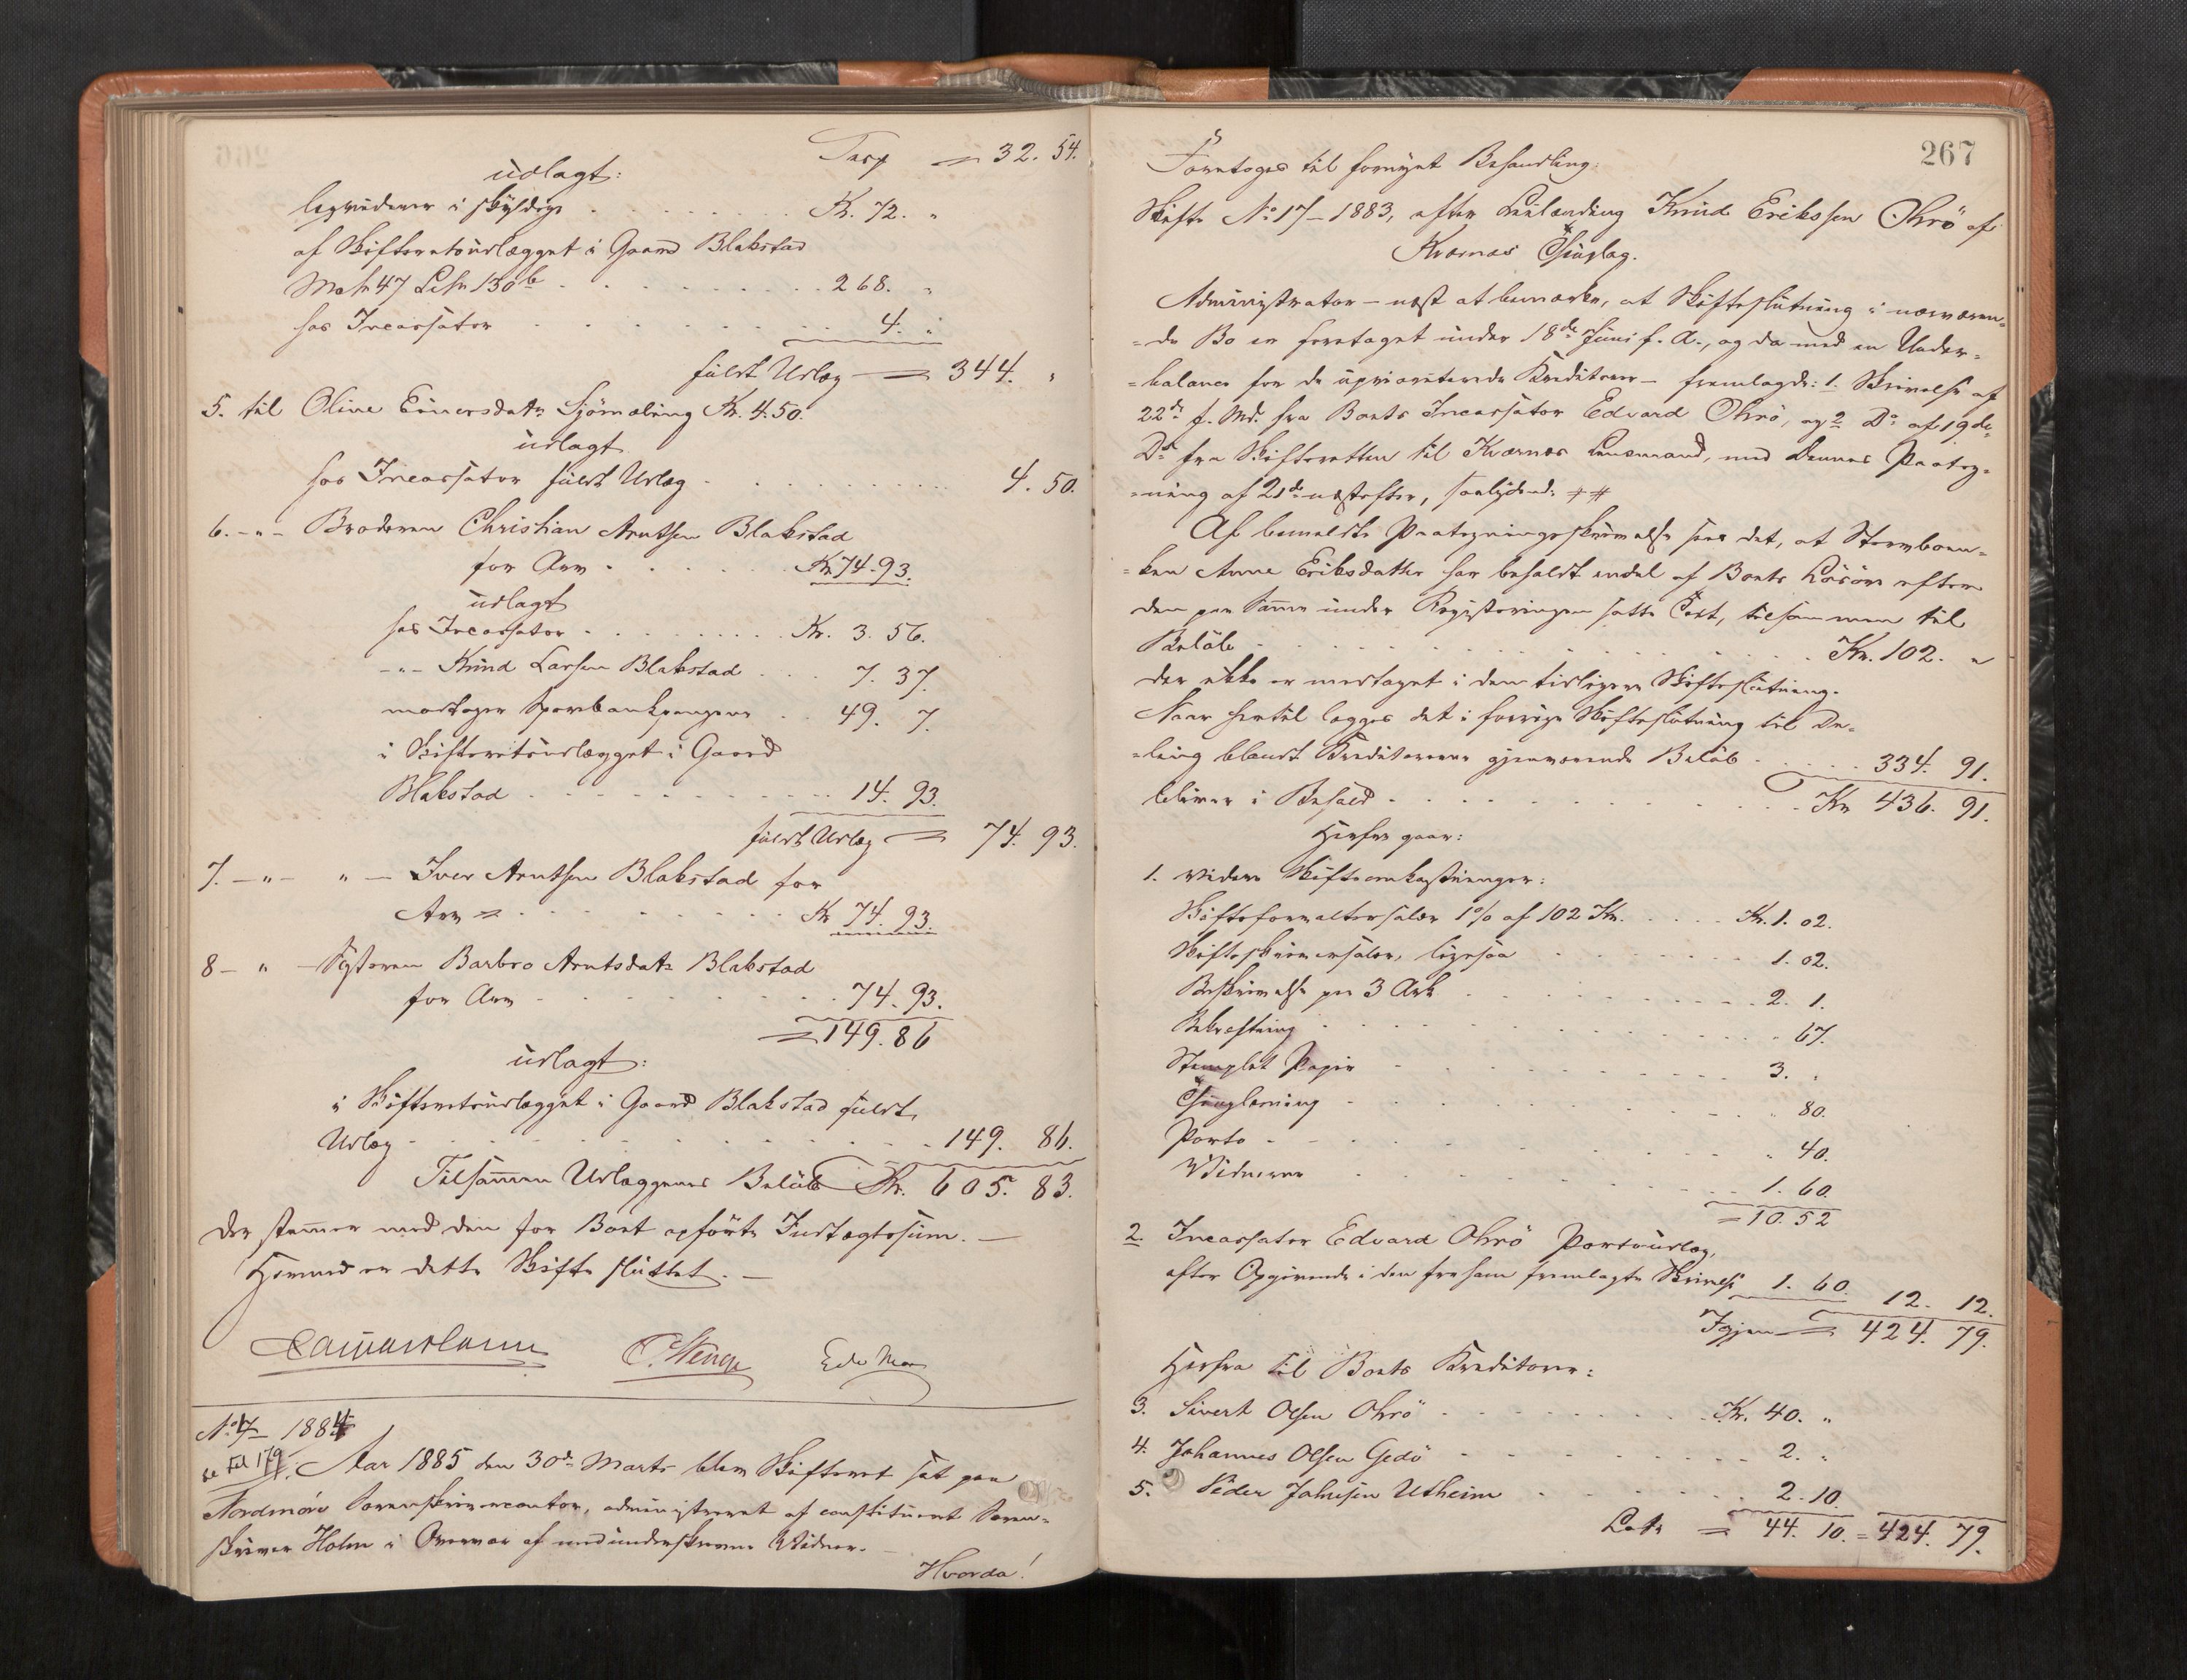 Tasp = 32. 54.
udlagt:
Legvidener i skyldige Kr. 72. "
af Skifteretsudlægget i Gaard Blakstad
Matr 47 Lbr 130b 268. "
hos Incassator 4. "
fuldt Udlæg = 344. "
5. til Oline Einersdatr Sjømæling Kr. 4.50.
udlagt
hos Incassator fuldt Udlæg 4. 50.
6. - " - Broderen Christian Arntsen Blakstad
for Arv Kr 74.93.
udlagt
hos Incassator Kr. 3. 56.
- " - Knud Larsen Blakstad 7. 37.
modtagne Sparebankpengene 49. 7.
i Skifteretsudlægget i Gaard
Blakstad 14. 93.
fuldt Udlæg = 74. 93.
7. - " - " - Iver Arntsen Blakstad for
Arv = Kr 74. 93.
8 - " - Systeren Barbro Arntsdatr Blakstad
for Arv 74. 93.
= 149. 86
udlagt:
i Skifteretsudlægget i Gaard Blakstad fuldt
Udlæg 149. 86.
Tilsammen Udlæggenes Beløb Kr. 605. 83.
der stemmer med den for Boet opførte Indtægtssum. —
Hermed er dette Skifte sluttet. —
Edv Moe
No 7 - 1884
se Fol 179. Aar 1885 den 30de Marts blev Skifteret sat paa
Nordmøre Sorenskrivercontor, administreret af constitueret Soren-
skriver Holm i Overvær af medunderskrevne Vidner. —
Hvorda!
267
Foretoges til fornyet Behandling:
Skifte No 17 - 1883, efter Leilænding Knud Erikssen Ohrö af
Kvernes Thinglag.
Administrator - næst at bemærke, at Skifteslutning i nærværen-
-de Bo er foretaget under 18de Juni f. A., og da med en Under-
-balance for de uprioriterede Kreditorer - fremlagde: 1. Skrivelse af
22de f. Md. fra Boets Incassator Edvard Ohrö, og 2 Do af 19de
Ds fra Skifteretten til Kvernes Lensmand, med Dennes Paateg-
-ning af 21de næstefter, saalydende #
Af bemeldte Paategningsskrivelse sees det, at Stervboen-
-ken Anne Eriksdatter har beholdt endel af Boets Løsøre efter
den paa samme under Registreringen satte Taxt, tilsammen til
Beløb Kr. 102. "
der ikke er medtaget i den tidligere Skifteslutning.
Naar hertil lægges det i forrige Skifteslutning til De-
-ling blandt Kreditorerne gjenværende Beløb 334. 91.
bliver i Behold Kr 436. 91.
Herfra gaar:
1. videre Skifteomkostninger:
Skifteforvaltersalær 1% af 102 Kr. Kr. 1. 02.
Skifteskriversalær, ligesaa 1. 02.
Beskrivelse paa 3 Ark 2. 1.
Bekræftning " 67.
Stemplet Papir 3. "
Thinglæsning " 80.
Porto " 40.
Vidnerne 1. 60.
= 10. 52
2. Incassator Edvard Ohrö Portoudlæg,
efter Opgivende i den fra ham fremlagte Skrivelse 1. 60. 12. 12.
Igjen = 424. 79.
Herfra til Boets Kreditorer:
3. Sivert Olsen Ohrö Kr. 40. "
4. Johannes Olsen Gedö 2. "
5. Peder Johnsen Utheim 2. 10.
Lats = 44. 10. = 424. 79.